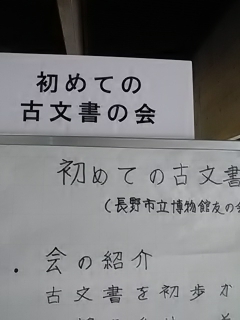 初めての
古文書の会
初めての古文書
(長野市立博物館友の会
・会の紹介
古文書を初歩か